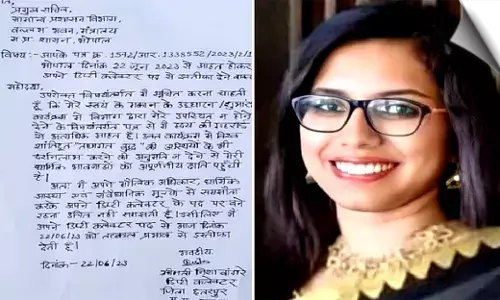 प्रमुख सचिव,
सामान्य प्रशासन विभाग,
वल्लभ भवन, मंत्रालय
म.प्र. शासन, भोपाल
विषय:- आपके पत्र क्र. 1592/आर.1338552/2023/2/1
भोपाल दिनांक 22 जून 2023 से आहत होकर
अपने डिप्टी कलेक्टर पद से इस्तीफा देने बाबत
महोदय,
उपरोक्त विषयांतर्गत में सूचित करना चाहती
हूँ कि मेरे स्वयं के मकान के उद्घाटन
कार्यक्रम में विभाग द्वारा मेरे उपस्थित न होने
देने के विषयांतर्गत पत्र से मैं
से अत्यधिक आहत हूँ। उक्त कार्यक्रम में विश्व
शांतिदूत "तथागत बुद्ध" की अस्थियों के भी
दर्शनलाभ करने की अनुमति न देने से मेरी
धार्मिक भावनाओं को अपूर्णनीय क्षति पहुँची
है।
अतः मैं अपने मौलिक अधिकार, धार्मिक
आस्था एवं संवैधानिक मूल्यों से समझौता
करके अपने डिप्टी कलेक्टर के पद पर बने
रहना उचित नहीं समझती हूँ। इसीलिए मैं
अपने डिप्टी कलेक्टर पद से आज दिनांक
22/06/23 को तत्काल प्रभाव से इस्तीफा
देती हूँ।
भवदीय
दिनांक - 22/06/23
श्रीमती निशा बांगरे
डिप्टी कलेक्टर
जिला छतरपुर